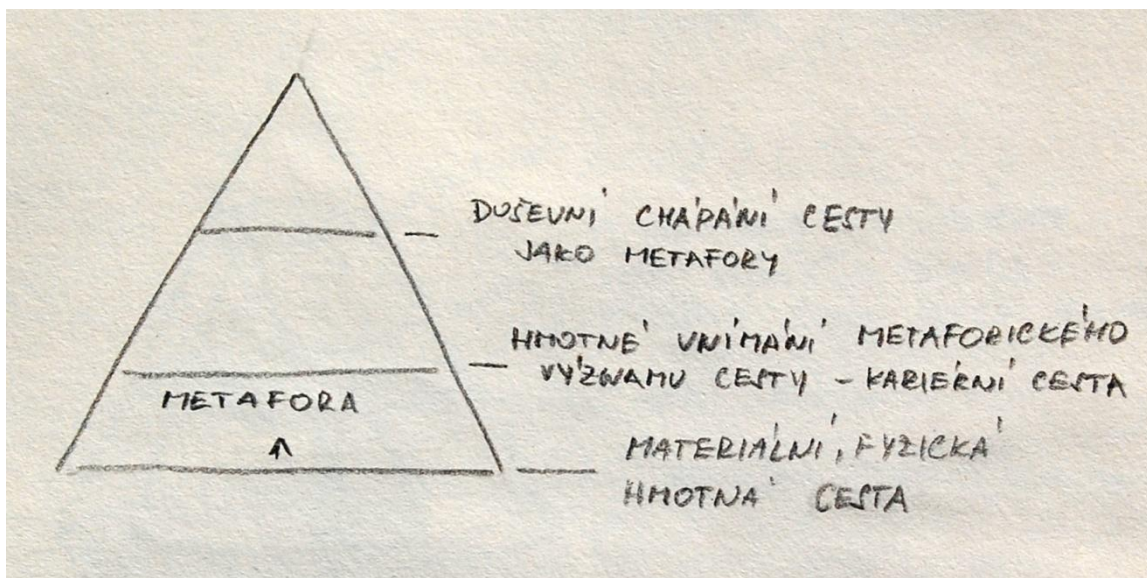 DUŠEVNÍ CHÁPÁNÍ CESTY
JAKO METAFORY
HMOTNÉ VNÍMÁNÍ METAFORICKÉHO
VÝZNAMU CESTY - KARIÉRNÍ CESTA
METAFORA
MATERIÁLNÍ, FYZICKÁ
HMOTNÁ CESTA